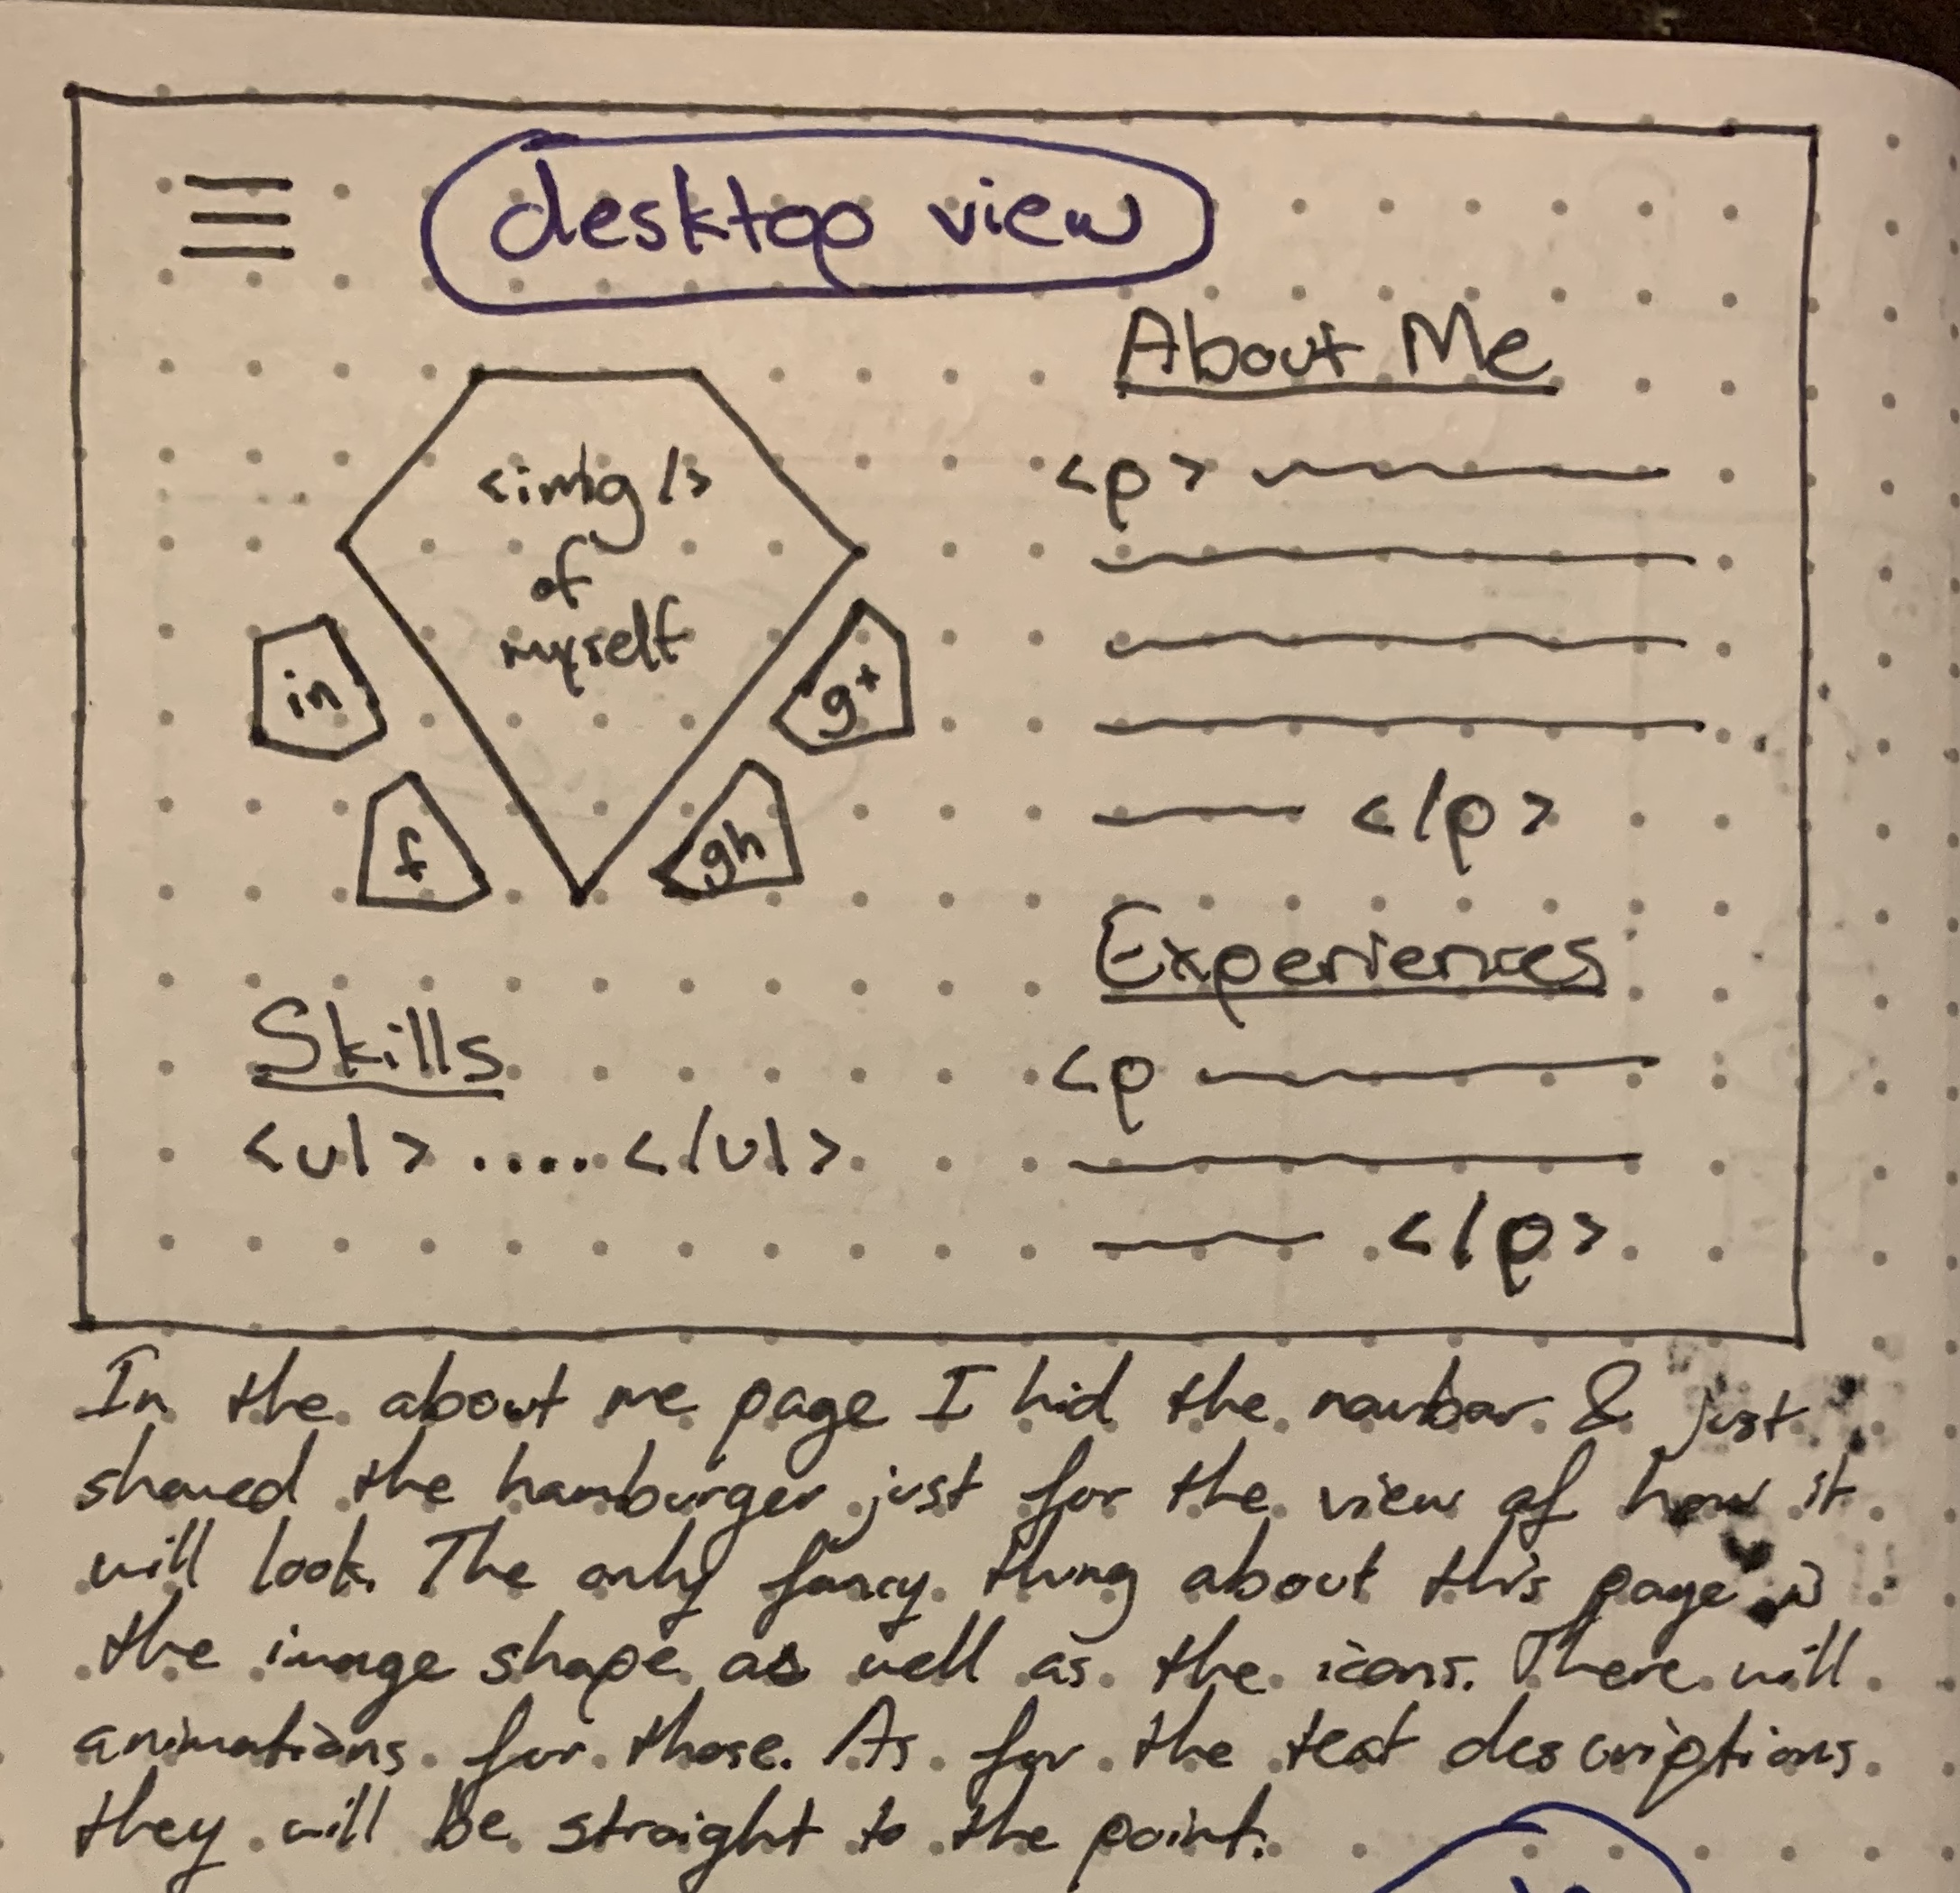 desktop view
<img/>
of
myself
in
f
gh
g+
Skills
<ul> ..... </ul>
About Me
<p>
</p>
Experiences
<p
</p>
In the about me page I hid the navbar & just
showed the hamburger just for the view of how it
will look. The only fancy thing about this page is
the image shape as well as the icons. There will
animations for those. As for the text descriptions
they will be straight to the point.